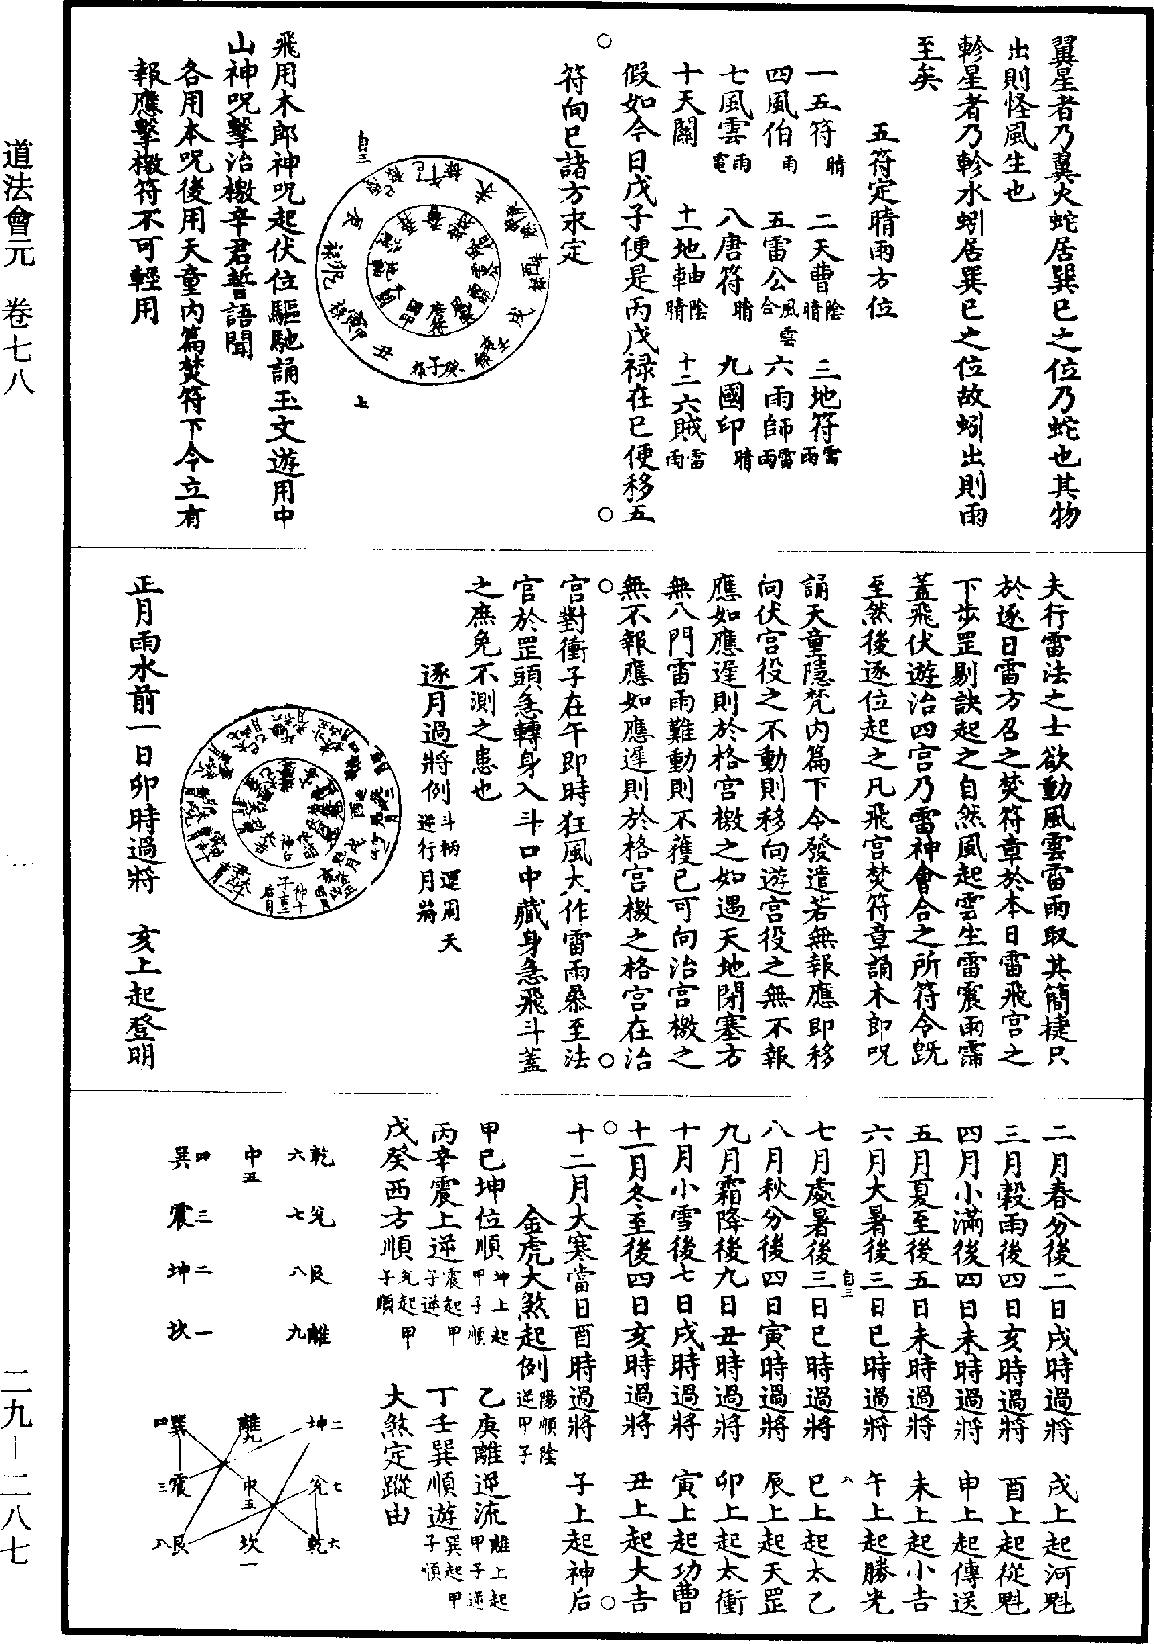 道法會元 卷七八
二九—二八七
翼星者乃翼火蛇居巽巳之位乃蛇也其物
出則怪風生也
軫星者乃軫水蚓居巽巳之位故蚓出則雨
至矣
五符定晴雨方位
一五符晴 二天曹陰晴 三地符雷雨
四風伯雨 五雷公風雲合 六雨師雷雨
七風雲雨電 八唐符晴 九國印晴
十天關 十一地軸陰晴 十二六賊雷雨
假如今日戊子便是丙戊禄在巳便移五
符向巳諸方求定
自三
上
飛用木郎神呪起伏位驅馳誦玉文遊用中
山神呪擊治檄辛君誓語聞
各用本呪後用天童內篇焚符下令立有
報應擊檄符不可輕用
夫行雷法之士欲動風雲雷雨取其簡捷只
於逐日雷方召之焚符章於本日雷飛宮之
下步罡剔訣起之自然風起雲生雷震雨霈
蓋飛伏遊治四宮乃雷神會合之所符令既
至然後逐位起之凡飛宮焚符章誦木郎呪
誦天童隱梵內篇下令發遣若無報應即移
向伏宮役之不動則移向遊宮役之無不報
應如應遲則於格宮檄之如遇天地閉塞方
無八門雷雨難動則不獲已可向治宮檄之
無不報應如應遲則於格宮檄之格宮在治
宮對衝子在午即時狂風大作雷雨暴至法
官於罡頭急轉身入斗口中藏身急飛斗蓋
之庶免不測之患也
逐月過將例斗柄還周天逆行月將
正月雨水前一日卯時過將 亥上起登明
二月春分後二日戌時過將 戌上起河魁
三月穀雨後四日亥時過將 酉上起從魁
四月小滿後四日未時過將 申上起傳送
五月夏至後五日未時過將 未上起小吉
六月大暑後三日巳時過將 午上起勝光
自三
八
七月處暑後三日巳時過將 巳上起太乙
八月秋分後四日寅時過將 辰上起天罡
九月霜降後九日丑時過將 卯上起太衝
十月小雪後七日戌時過將 寅上起功曹
十一月冬至後四日亥時過將 丑上起大吉
十二月大寒當日酉時過將 子上起神后
金虎大煞起例陽順陰逆甲子
甲己坤位順坤上起甲子順 乙庚離逆流離上起甲子逆
丙辛震上逆震起甲子逆 丁壬巽順遊巽起甲子順
戊癸西方順兌起甲子順 大煞定蹤由
乾六 中五 巽四
兌七 震三
艮八 坤二
離九 坎一
坤二 離九 巽四
兌七 中五 震三
乾六 坎一 艮八